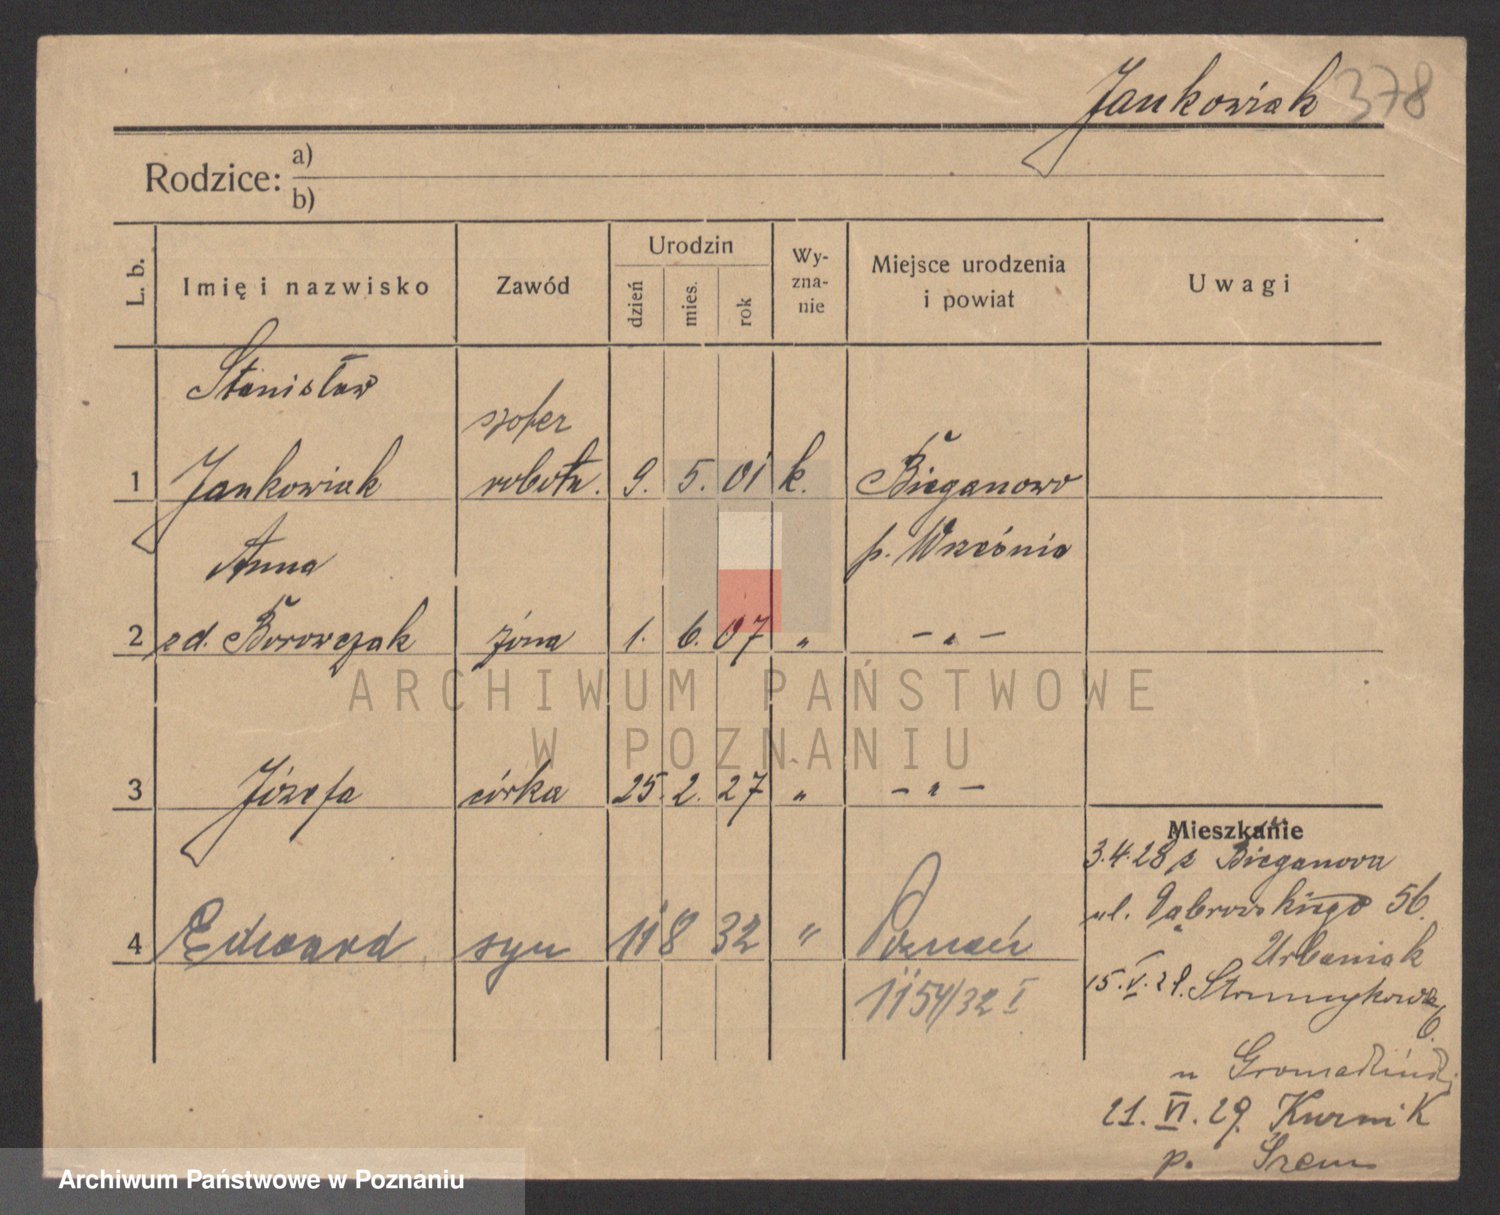 Jankowiak 378
Rodzice: a)
b)
L. b. Imię i nazwisko Zawód Urodzin dzień mies. rok Wy-zna-nie Miejsce urodzenia i powiat Uwagi
Stanisław
szofer
1 Jankowiak robotn. 9. 5. 01 k. Bieganowo
Anna p. Września
2 zd. Borowczak żona 1. 6. 07 " - " -
ARCHIWUM PAŃSTWOWE
W POZNANIU
3 Józefa córka 25. 2. 27 " - " -
Mieszkanie
3.4.28 z Bieganowa
ul. Dąbrowskiego 56.
4 Edward syn 11 8 32 " Poznań
Urbaniak
15.V.29. Strumykowa
6.
1154/32 I
u
21.VI.29. Kurnik
p. Śrem
Archiwum Państwowe w Poznaniu